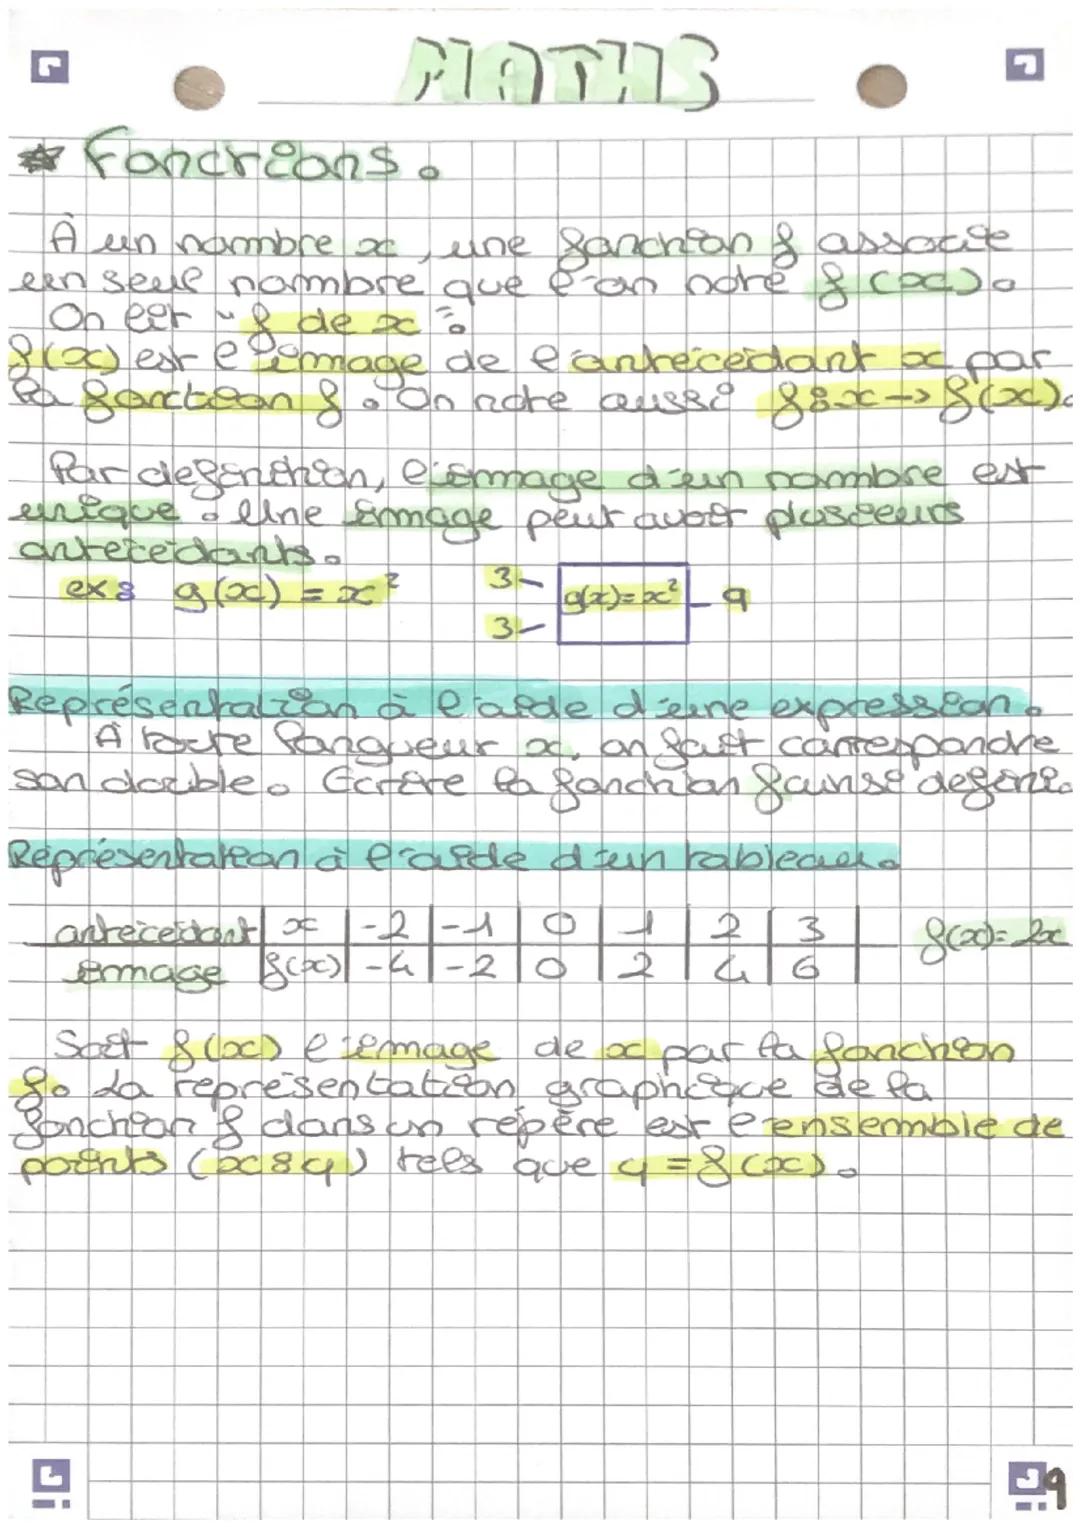 MATHS
* Fonctions.
À un nombre x, une fonction f associe
un seul nombre que l'on note f(x).
On lit "f de x".
f(x) est l'image de l'antécédant x par
la fonction f. On note aussi f:x→f(x).
Par definition, l'image d'un nombre est
unique. Une image peut avoir plusieurs
antécédants.
ex: g(x) = x²
3 g(x)=x² 9
3
Représentation à l'aide d'une expression.
À toute longueur x, on fait correspondre
son double. Ecrire la fonction f ainsi définie.
Représentation à l'aide d'un tableau.
antécédant x -2 -1 0 1 2 3 f(x)=2x
image f(x) -4 -2 0 2 4 6
Soit f(x) l'image de x par la fonction
f. La représentation graphique de la
fonction f dans un repère est l'ensemble de
points (x;y) tels que y=f(x).
9